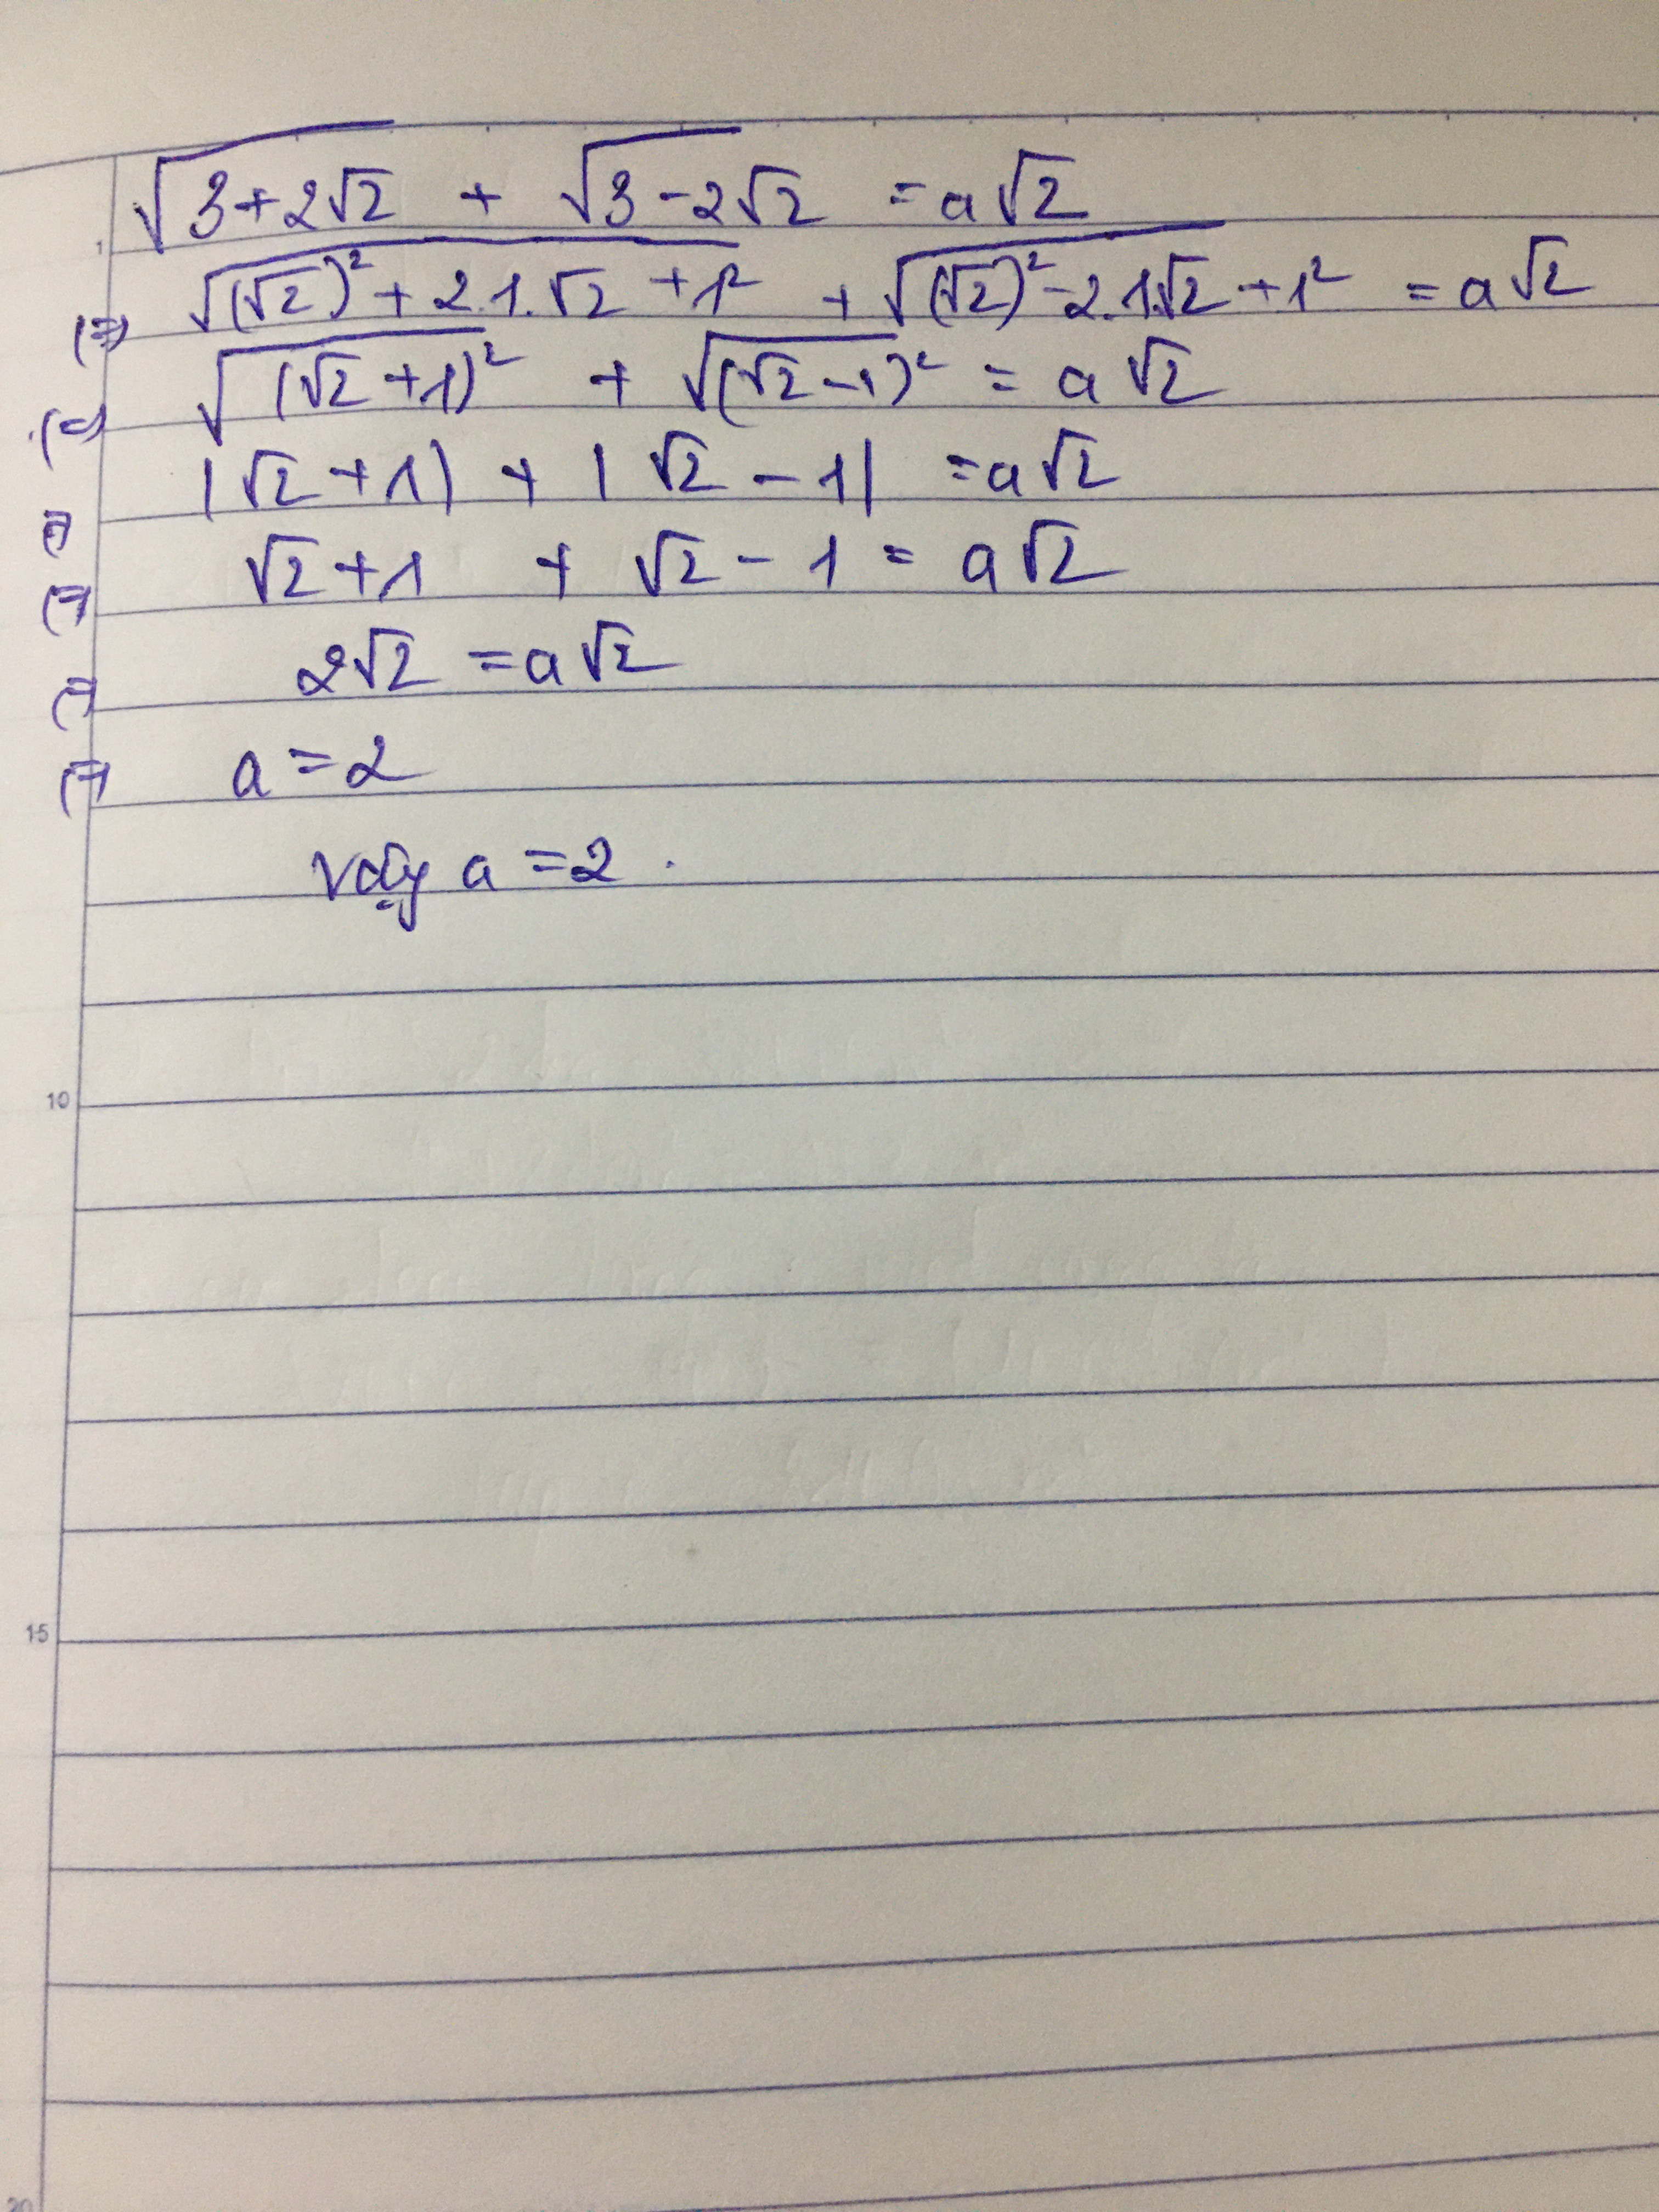 √(3+2√2) + √(3-2√2) = a√2
1
(=) √((√2)² + 2.1.√2 + 1²) + √((√2)² - 2.1.√2 + 1²) = a√2
(=) √((√2+1)²) + √((√2-1)²) = a√2
(=) |√2+1| + |√2-1| = a√2
(=) √2+1 + √2-1 = a√2
(=) 2√2 = a√2
(=) a = 2
Vậy a = 2.
10
15
20